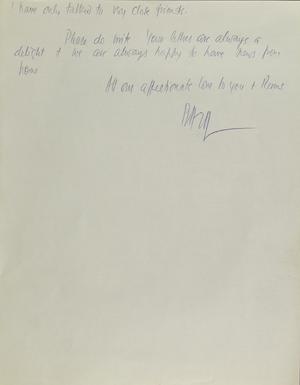 I have only talked to very close friends.
Please do write Your letters are always a
delight & we are always happy to have news from
home
All our affectionate love to you &